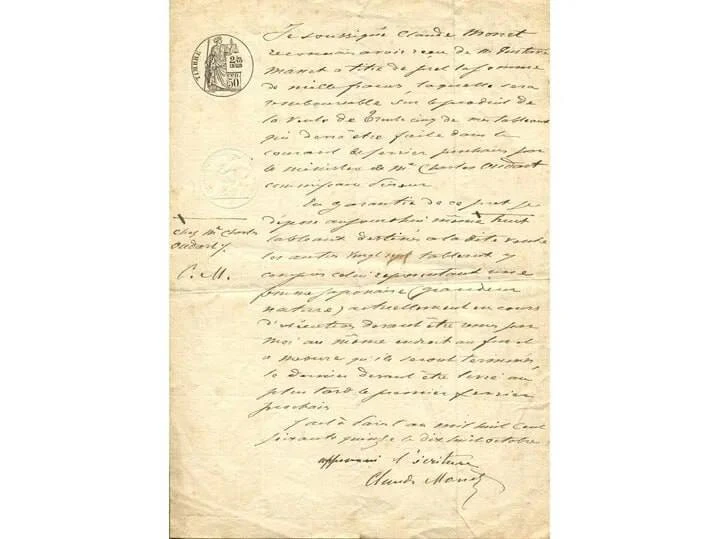 TIMBRE
50
Je soussigné Claude Monet
reconnais avoir reçu de M. Gustave
Manet à titre de prêt la somme
de mille francs laquelle sera
remboursable sur le produit de
la vente de trente cinq de mes tableaux
qui devra être faite dans le
courant de février prochain par
le ministère de Mr Charles Oudart
commissaire priseur
En garantie de ce prêt je
dépose aujourd'hui même huit
tableaux destinés à la dite vente
les autres vingt sept tableaux y
compris celui représentant une
femme japonaise (grandeur
nature) actuellement en cours
d'exécution devant être remis par
moi au même endroit au fur et
à mesure qu'ils seront terminés
le dernier devant être livré au
plus tard le premier février
prochain
Fait à Paris an mil huit cent
soixante quinze le dix huit octobre
approuvé l'écriture
Claude Monet
chez Mr Charles
Oudart
C. M.